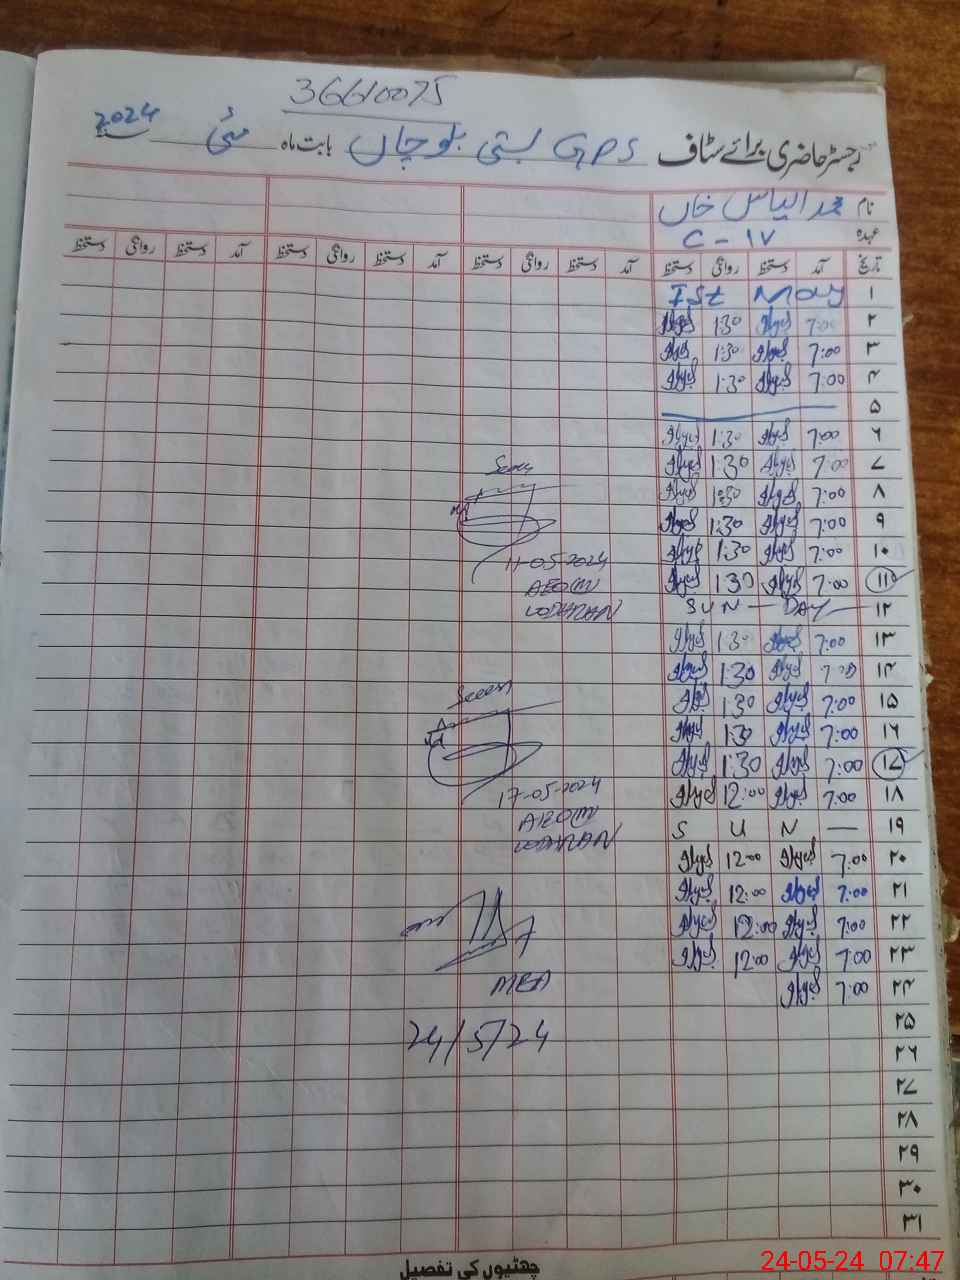 36610075
رجسٹر حاضری برائے سٹاف GPS بستی بلوچاں بابت ماہ مئی 2024
نام محمد الیاس خاں
عہدہ C - IV
تاریخ آمد دستخط روانگی دستخط آمد دستخط روانگی دستخط آمد دستخط روانگی دستخط
۱ Ist May
۲ 7:00 1:30
۳ 7:00 1:30
۴ 7:00 1:30
۵
۶ 7:00 1:30
۷ 7:00 1:30
۸ 7:00 1:30
۹ 7:00 1:30
۱۰ 7:00 1:30
۱۱ 7:00 1:30
۱۲ SUN — DAY —
۱۳ 7:00 1:30
۱۴ 7:00 1:30
۱۵ 7:00 1:30
۱۶ 7:00 1:30
۱۷ 7:00 1:30
۱۸ 7:00 12:00
۱۹ S U N —
۲۰ 7:00 12:00
۲۱ 7:00 12:00
۲۲ 7:00 12:00
۲۳ 7:00 12:00
۲۴ 7:00
۲۵
۲۶
۲۷
۲۸
۲۹
۳۰
۳۱
Seen
11-05-2024
AEO(M)
LODHRAN
Seen
17-05-2024
AEO(M)
LODHRAN
MEA
24/5/24
چھٹیوں کی تفصیل
24-05-24 07:47